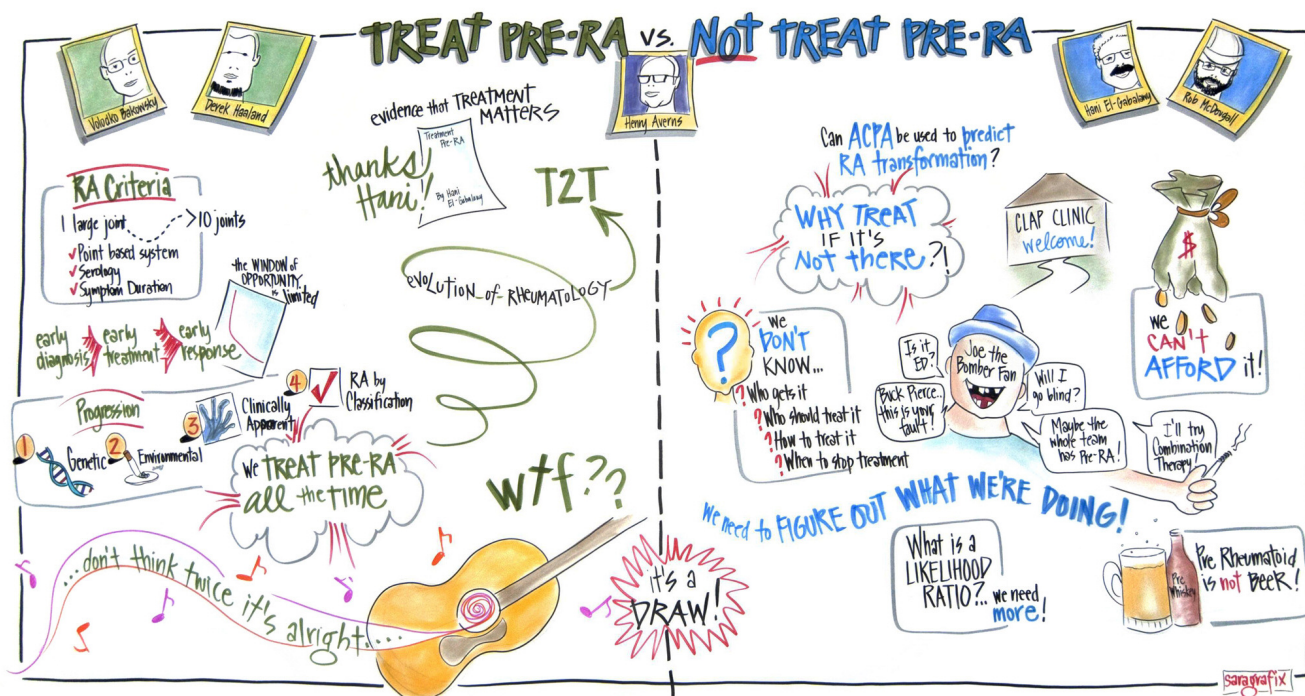 TREAT PRE-RA VS. NOT TREAT PRE-RA
Volodko Bakowsky
Derek Haaland
Henry Averns
Hani El-Gabalawy
Rob McDougall
evidence that TREATMENT
MATTERS
Treatment
Pre-RA
By Hani
El-Gabalawy
thanks
Hani!
T2T
RA Criteria
1 large joint
>10 joints
Point based system
Serology
Symptom Duration
the WINDOW OF
OPPORTUNITY
is limited
early
diagnosis
early
treatment
early
response
evolution of RHEUMATOLOGY
Progression
1
Genetic
2
Environmental
3
Clinically
Apparent
4
RA by
Classification
We TREAT PRE-RA
all the time
wtf??
...don't think twice it's alright....
it's a
DRAW!
Can ACPA be used to predict
RA transformation?
WHY TREAT
IF IT'S
NOT there?!
CLAP CLINIC
welcome!
$
we
CAN'T
AFFORD it!
?
we
DON'T
KNOW...
? Who gets it
? Who should treat it
? How to treat it
? When to stop treatment
Joe the
Bomber Fan
Is it
ED?
Buck Pierce..
this is your
fault!
Will I
go blind?
Maybe the
whole team
has Pre-RA!
I'll try
Combination
Therapy
we need to FIGURE OUT WHAT WE'RE DOING!
What is a
LIKELIHOOD
RATIO?.. we need
more!
Pre
Whiskey
Pre Rheumatoid
is not BEER!
saragrafix